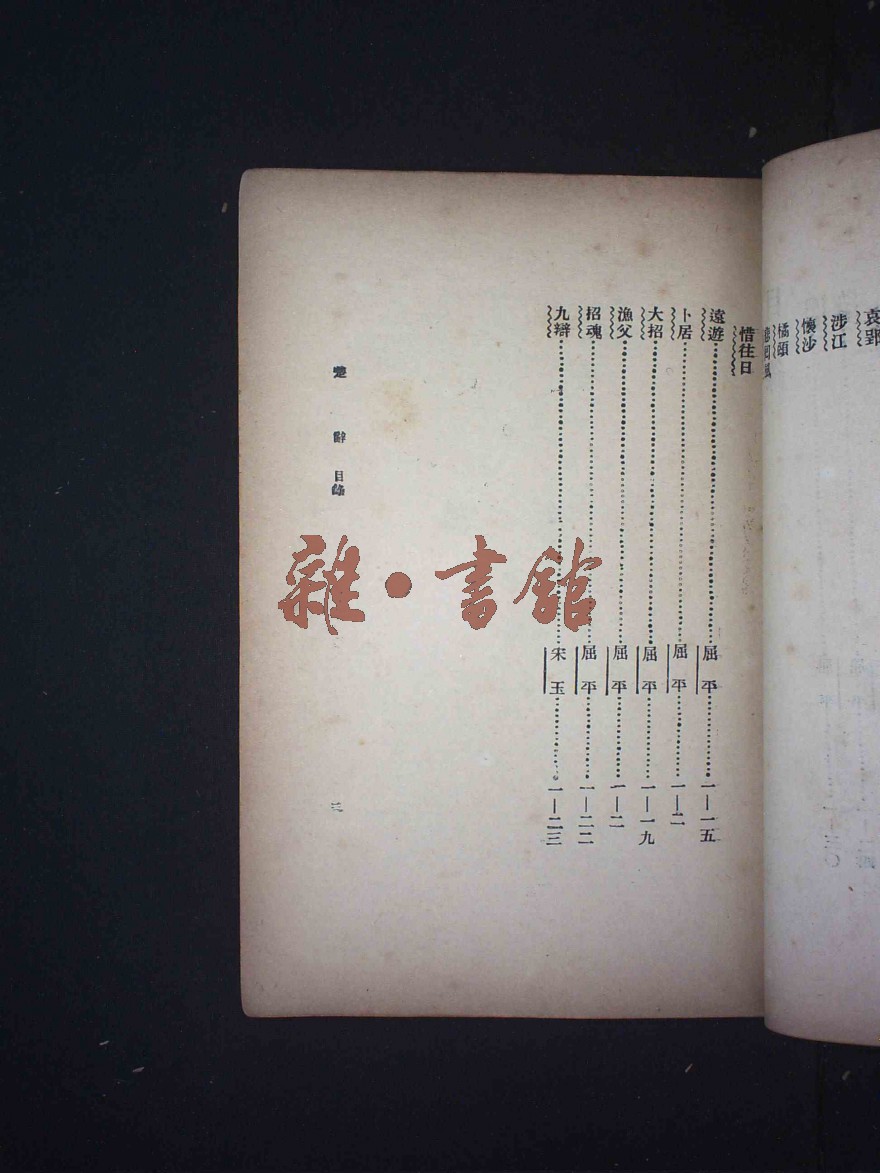 哀郢
涉江
懷沙
橘頌
悲回風
惜往日
遠遊 屈平 一—一五
卜居 屈平 一—二
大招 屈平 一—一九
漁父 屈平 一—二
招魂 屈平 一—二二
九辯 宋玉 一—二三
楚辭 目錄 三
雜·書館